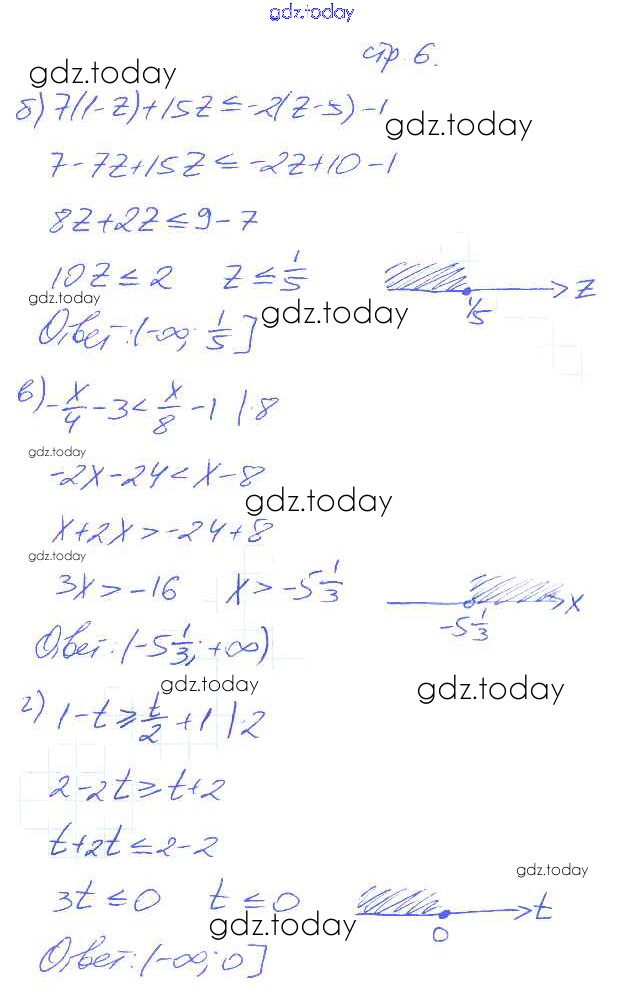 gdz.today
стр. 6.
gdz.today
б) 7(1-z)+15z≤-2(z-5)-1
gdz.today
7-7z+15z≤-2z+10-1
8z+2z≤9-7
10z≤2 z≤1/5
1/5 z
gdz.today
gdz.today
Ответ: (-∞; 1/5]
в) -x/4-3<x/8-1 |·8
gdz.today
-2x-24<x-8
gdz.today
x+2x>-24+8
gdz.today
3x>-16 x>-5 1/3
-5 1/3 x
Ответ: (-5 1/3; +∞)
gdz.today
gdz.today
г) 1-t≥t/2+1 |·2
2-2t≥t+2
t+2t≤2-2
gdz.today
3t≤0 t≤0
0 t
gdz.today
gdz.today
Ответ: (-∞; 0]